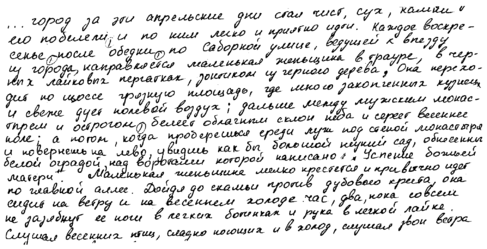 ... город за эти апрельские дни стал чист, сух, камни
его побелели, и по ним легко и приятно идти. Каждое воскре-
сенье, после обедни, по Соборной улице, ведущей к выезду
из города, направляется маленькая женщина в трауре, в чер-
ных лайковых перчатках, зонтиком из черного дерева. Она перехо-
дит по шоссе грязную площадь, где много закопченных кузниц
и свежо дует полевой воздух; дальше между мужским монас-
тырем и острогом, белеет облачный склон неба и сереет весеннее
поле; а потом, когда проберешься среди луж под стеной монастыря
и повернешь на лево, увидишь как бы большой низкий сад, обнесенный
белой оградой, над воротами которой написано: "Успение божьей
матери". Маленькая женщина мелко крестится и привычно идет
по главной аллее. Дойдя до скамьи против дубового креста, она
сидит на ветру и на весеннем холоде час, два, пока совсем
не зазябнут ее ноги в легких ботинках и рука в легкой лайке.
Слушая весенних птиц, сладко поющих и в холод, слушая звон ветра